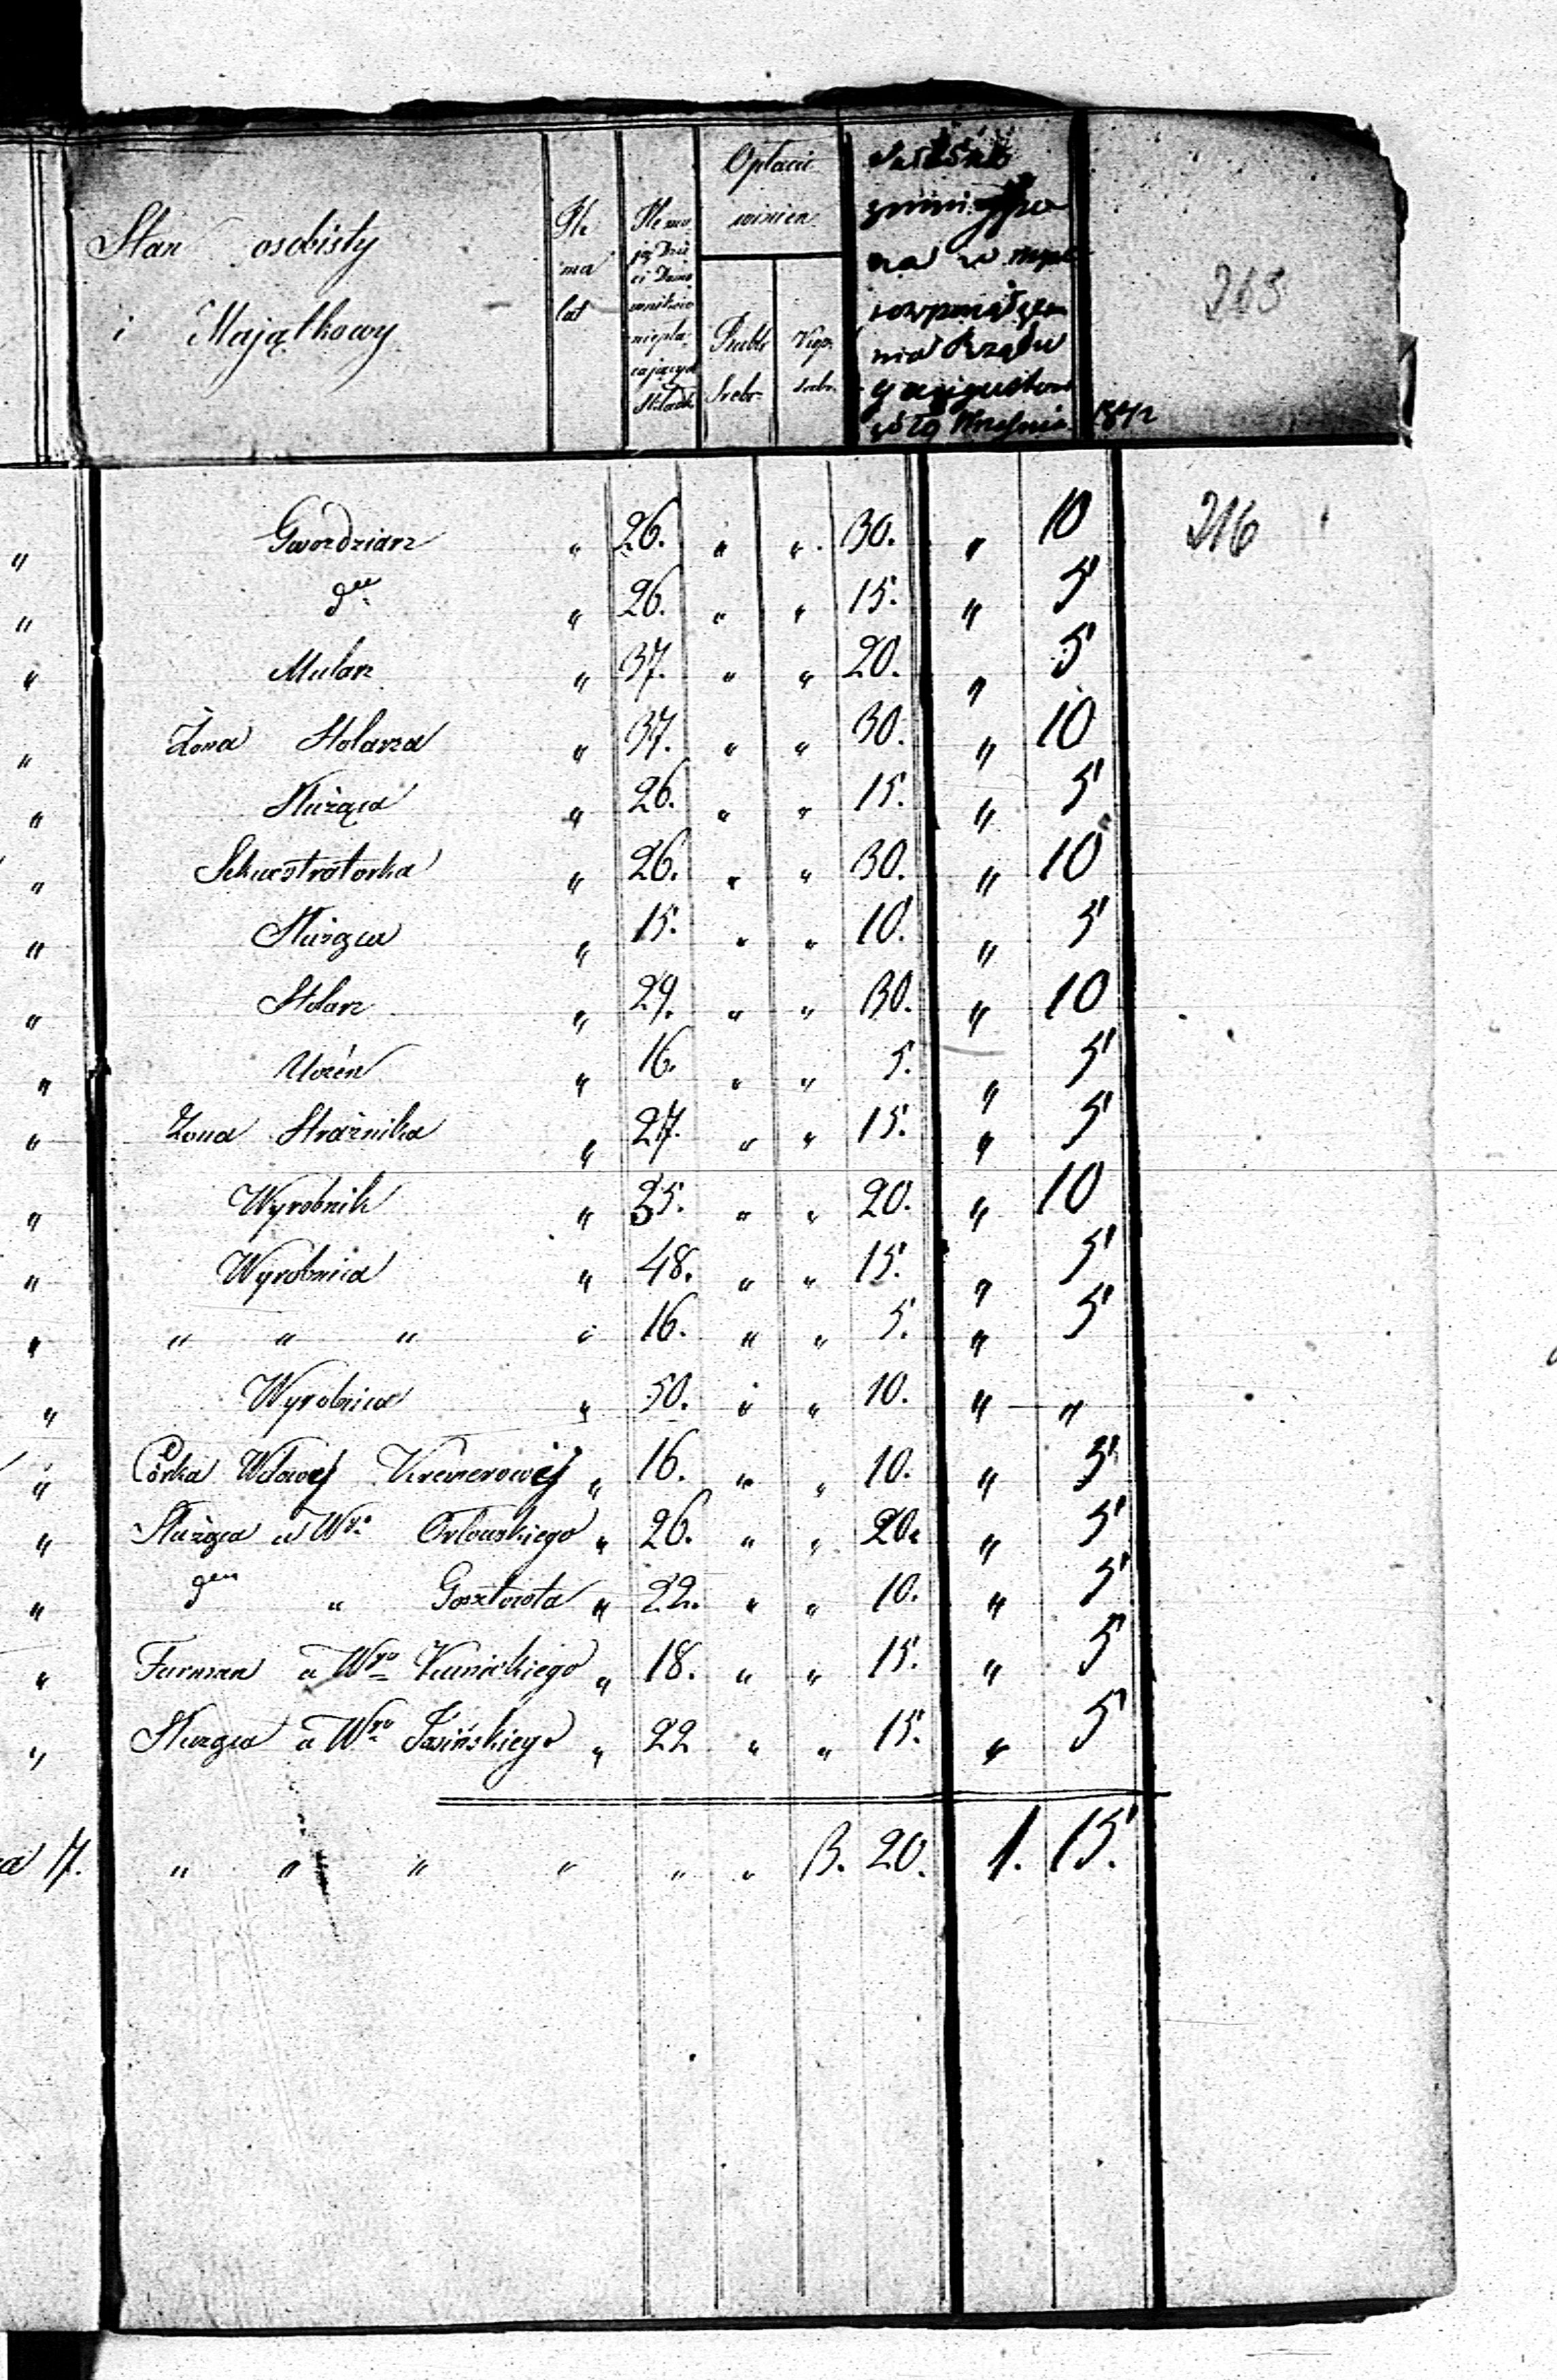 Stan osobisty
i Majątkowy
Ile
ma
lat
Ile ma-
ją Dzie
ci Domo
wników
niepła-
cających
Składk
Opłacić
winien
Rubli
Srebr.
Kop.
srebr.
na w myśl
rozporządze
nia Rządu
Września 1842
265
216
" Gwoździarz " 26. " " 30. " 10
" dto " 26. " " 15. " 5
" Mularz " 37. " " 20. " 5
" Żona Stolarza " 37. " " 30. " 10
" Służąca " 26. " " 15. " 5
" Sekwestratorka " 26. " " 30. " 10
" Służąca " 15. " " 10. " 5
" Stolarz " 29. " " 30. " 10
" Uczeń " 16. " " 5. " 5
" Żona Strażnika " 27. " " 15. " 5
" Wyrobnik " 35. " " 20. " 10
" Wyrobnica " 48. " " 15. " 5
" " " " " 16. " " 5. " 5
" Wyrobnica " 50. " " 10. " "
" Córka Wdowy Kremerowéj " 16. " " 10. " 5
" Służąca u Wgo Orłowskiego " 26. " " 20. " 5
" " Gosztowta " 22. " " 10. " 5
" Furman u Wgo Kunickiego " 18. " " 15. " 5
" Służąca u Wgo Jasińskiego " 22 " " 15. " 5
" " " " " " 3. 20. 1. 15.